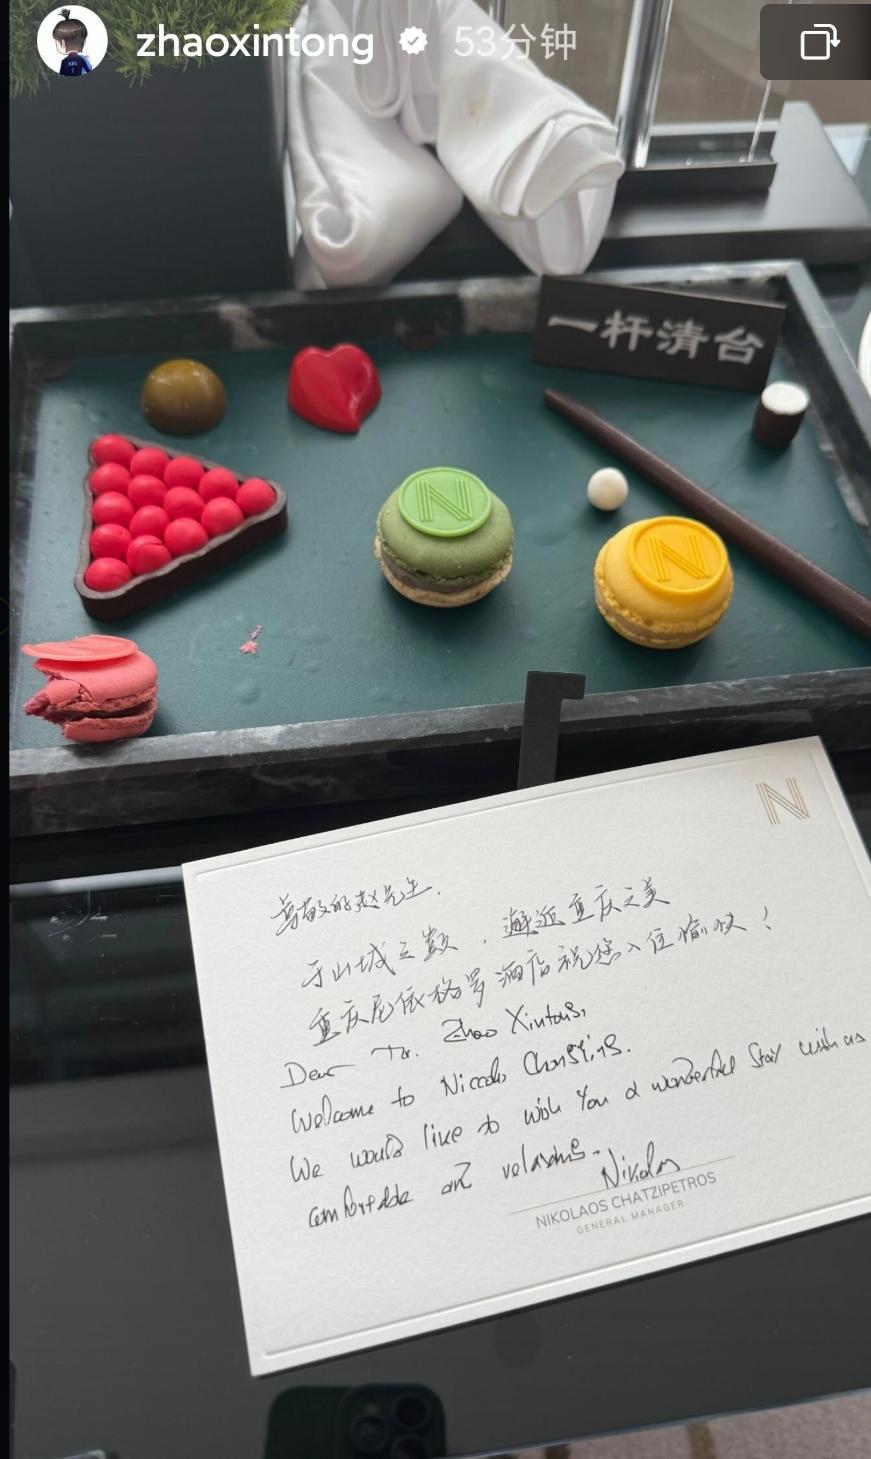 zhaoxintong 53分钟
一杆清台
N
N
N
尊敬的赵先生,
于山城之巅,邂逅重庆之美
重庆尼依格罗酒店祝您入住愉快!
Dear Mr. Zhao Xintong,
Welcome to Niccolo Chongqing.
We would like to wish you a wonderful stay with us
comfortable and relaxing.
Nikolaos
NIKOLAOS CHATZIPETROS
GENERAL MANAGER